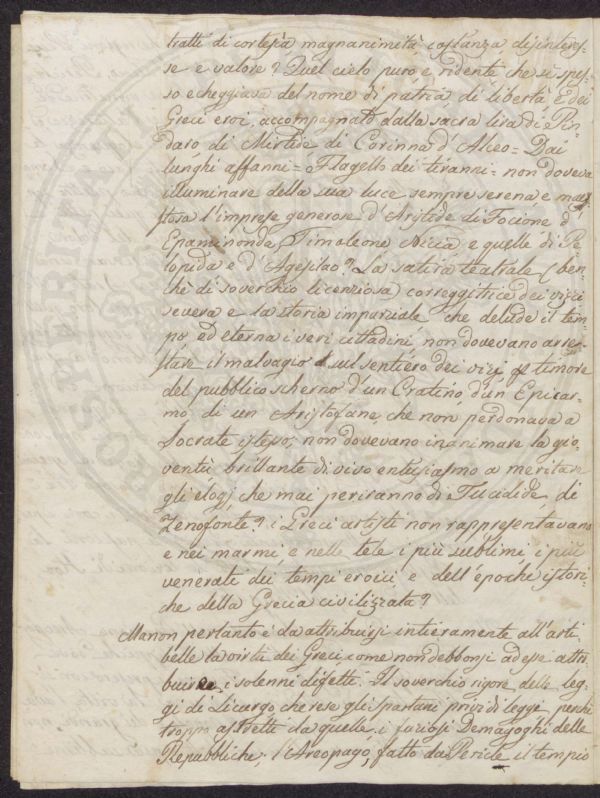 tratti di cortesia magnanimità costanza disinteres-
se e valore? Quel cielo puro e ridente che sì spes-
so echeggiava del nome di patria di libertà E dei
Greci eroi, accompagnato dalla sacra lira di Pin
daro di Mirtide di Corinna d'Alceo = Dai
lunghi affanni = Flagello dei tiranni = non doveva
illuminare della sua luce sempre serena e mae
stosa l'imprese generose d'Aristide di Focione d'
Epaminonda Timoleone Nicia e quelle di Pe
lopida e d'Agesilao? La satira teatrale (ben
chè di soverchio licenziosa) correggitrice dei vizi
severa e la storia imparziale che delude il tem-
po ed eterna i veri cittadini, non dovevano arre-
stare il malvagio sul sentiero dei vizj pel timore
del pubblico scherno d'un Cratino, d'un Epicar-
mo di un Aristofane, che non perdonava a
Socrate istesso, non dovevano inanimare la gio-
ventù brillante di vivo entusiasmo a meritare
gli elogj che mai periranno di Tucidide, di
Zenofonte? i Greci artisti non rappresentavano
e nei marmi, e nelle tele i più sublimi i più
venerati dei tempi eroici, e dell'epoche istori-
che della Grecia civilizzata?
Ma non pertanto è da attribuirsi intieramente all'arti
belle la virtù dei Greci, come non debbonsi ad esse attri
buire i solenni difetti. Il soverchio rigore delle leg-
gi di Licurgo che rese gli Spartani privi di leggi perchè
troppo astretti da quelle, i furiosi Demagoghi delle
Repubbliche; l'Areopago, fatto da Pericle il tempio